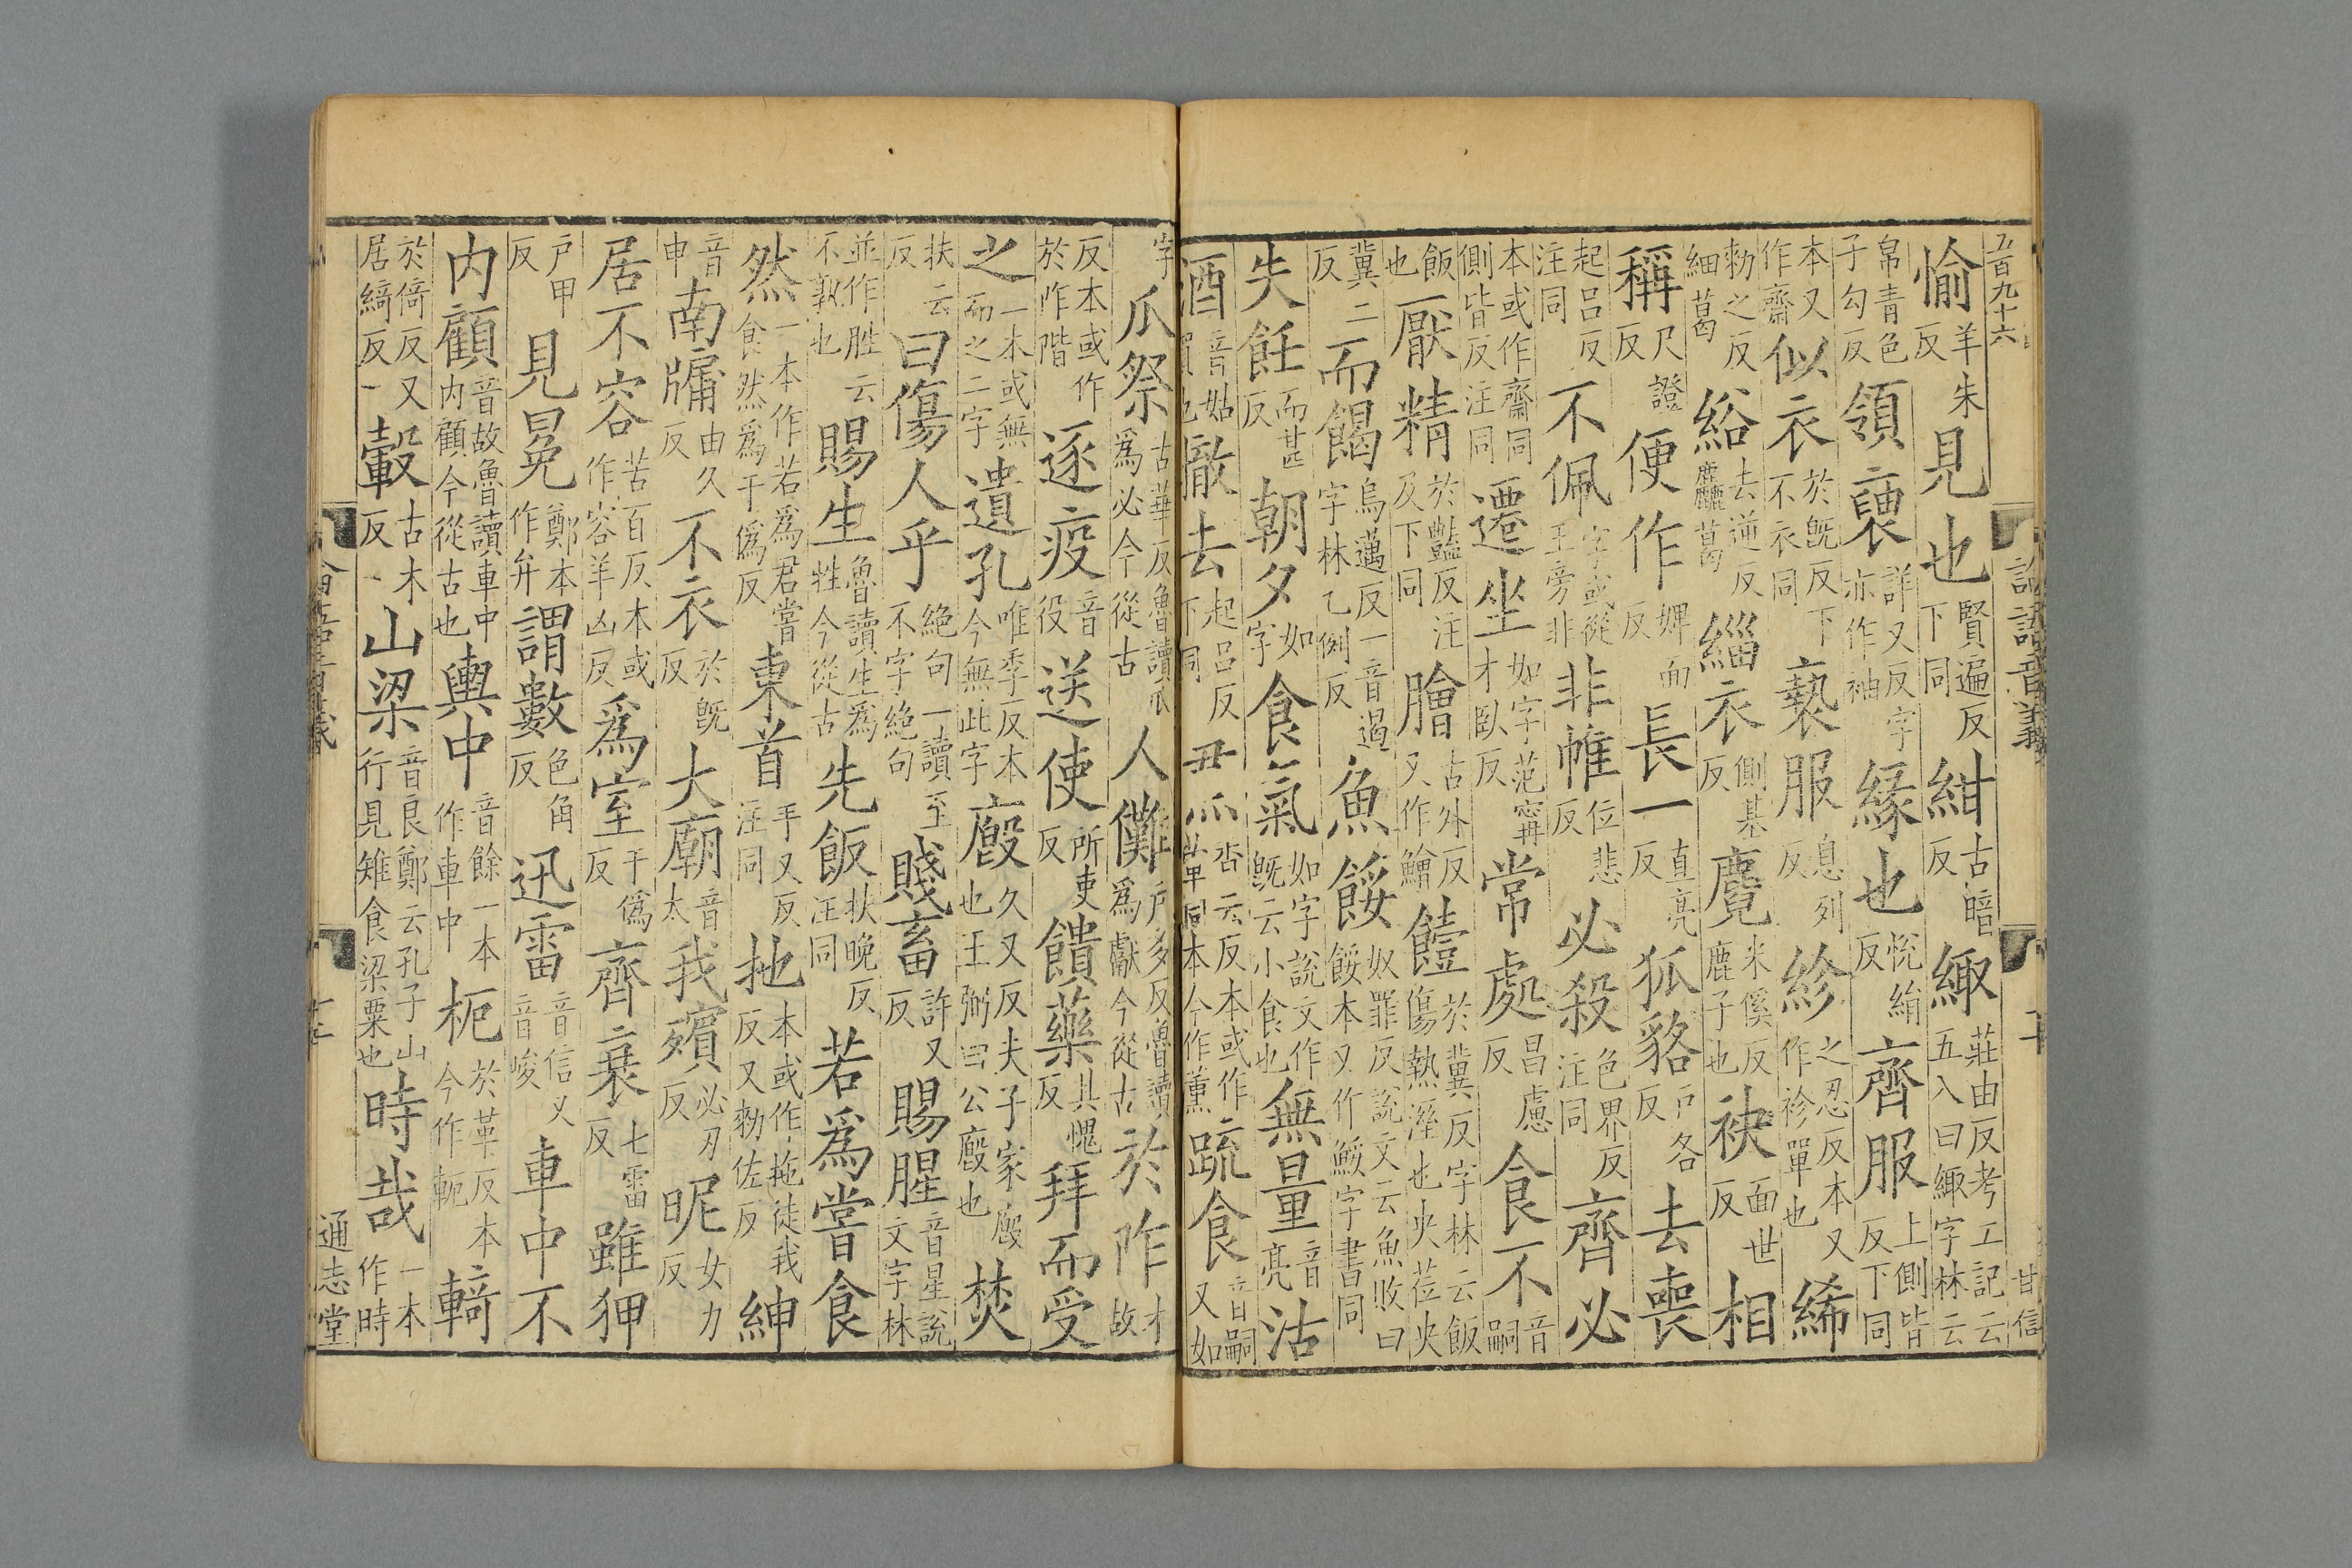 五百九十六 論語音義 十 甘信
愉羊朱反見也賢遍反下同紺古暗反緅莊由反考工記云五入曰緅字林云
帛青色子勾反領褎詳又反字亦作袖緣也悅絹反齊服上側皆反下同
本又作齋似衣於旣反下不衣同褻服息列反紾之忍反本又作袗單也絺
勑之反細葛綌去逆反麤葛緇衣側基反麑米傒反鹿子也袂面世反相
稱尺證反便作婢面反長一直亮反狐貉戶各反去喪
起呂反注同不佩字或從王旁非非帷位悲反必殺色界反注同齊必
本或作齋同側皆反注同遷坐如字范甯才臥反常處昌慮反食不音嗣
飯也厭精於豔反注及下同膾古外反又作鱠饐於冀反字林云飯傷熱溼也央莅央
冀二反而餲烏邁反一音遏字林乙例反魚餒奴罪反說文云魚敗曰餒本又作鮾字書同
失飪而甚反朝夕如字食氣如字說文作旣云小食也無量音亮沽
酒音姑買也撤去起呂反下同本或作本今作薰疏食音嗣又如
字瓜祭古華反魯讀瓜爲必今從古人儺戶多反魯讀爲獻今從古於阼才故
反本或作於阼階逐疫音役送使所吏反饋藥其愧反拜而受
之一本或無而之二字遺孔唯季反本今無此字廄久又反夫子家廄也王弼曰公廄也焚
扶云反曰傷人乎絕句一讀至不字絕句賤畜許又反賜腥音星說文字林
並作胜云不孰也賜生魯讀生爲牲今從古先飯扶晚反注同若爲嘗食
然一本作若爲君嘗食然爲于僞反東首手又反注同扡本或作拖徒我反又勑佐反紳
音申南牖由久反不衣於旣反大廟音太我殯必刃反昵女力反
居不容苦百反本或作容羊凶反爲室于僞反齊衰七雷反雖狎
戶甲反見冕鄭本作弁謂數色角反迅雷音信又音峻車中不
內顧音故魯讀車中內顧今從古也輿中音餘一本作車中枙於革反本今作軛輢
於倚反又居綺反轂古木反山梁音良鄭云孔子山行見雉食梁粟也時哉一本作時
通志堂